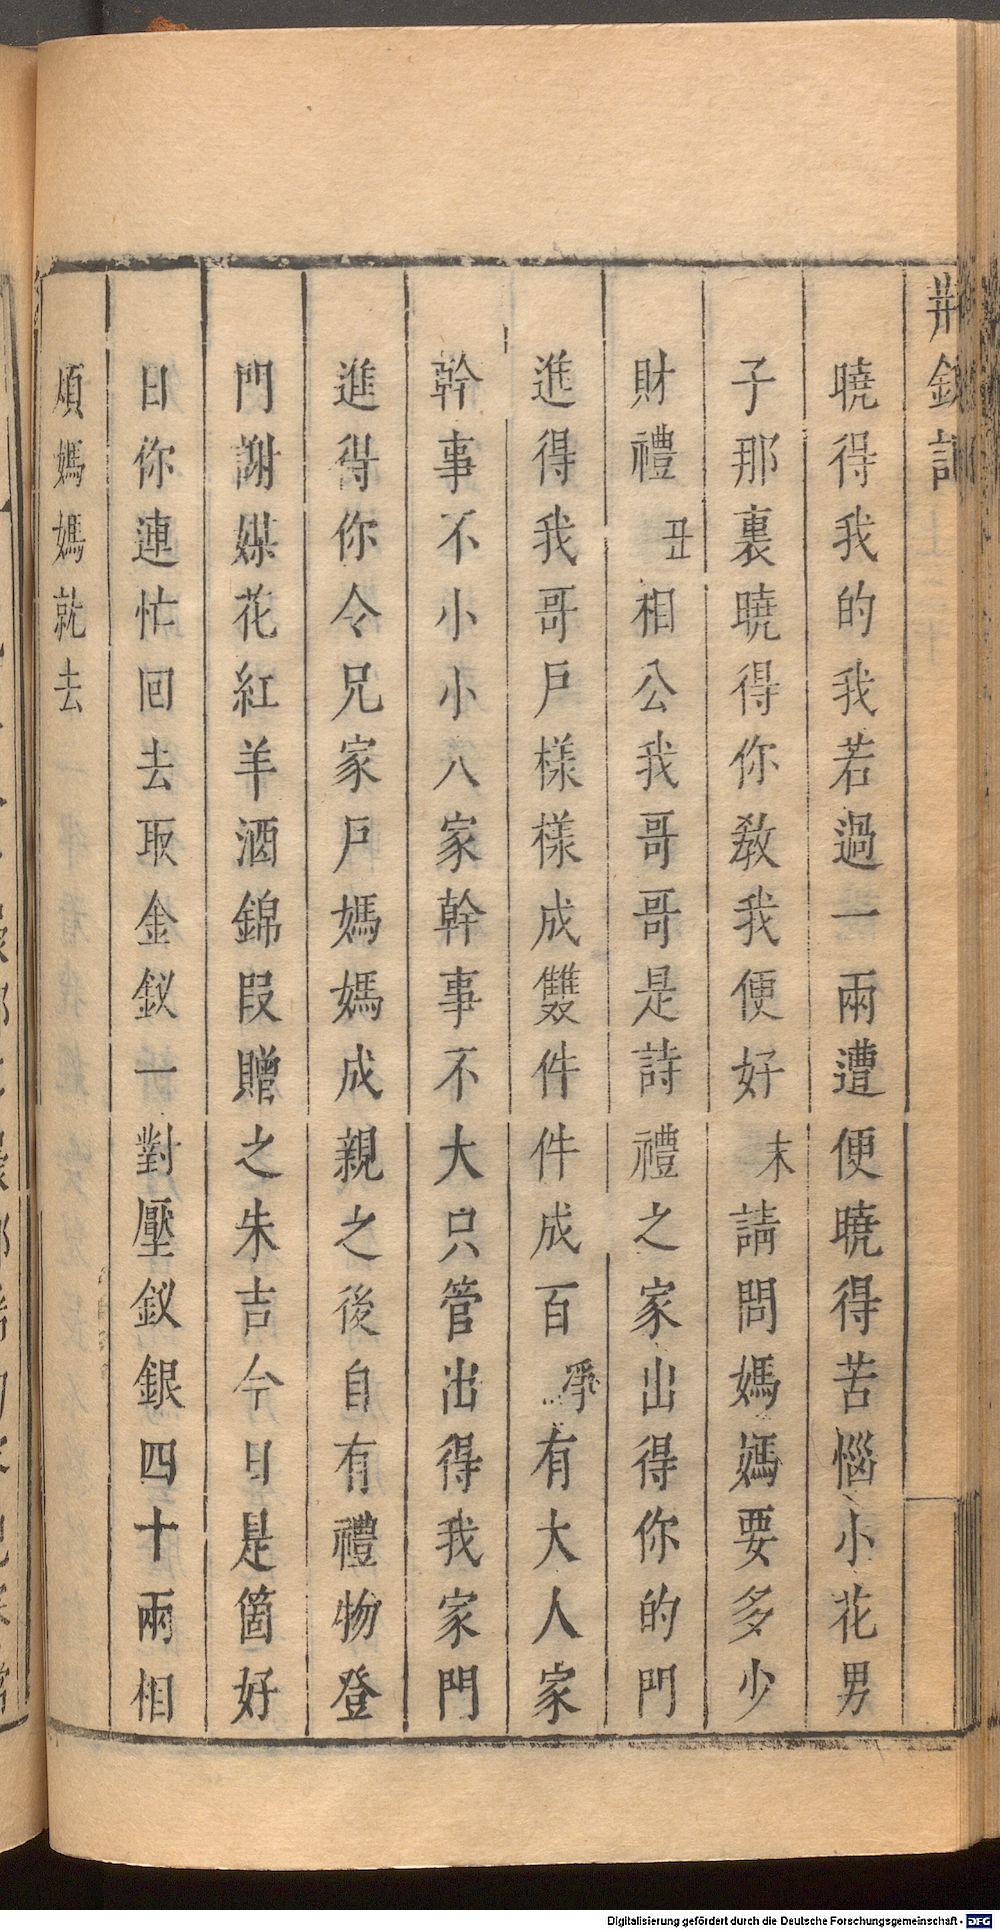 荆釵記
曉得我的我若過一兩遭便曉得苦惱小花男
子那裏曉得你教我便好末請問媽媽要多少
財禮丑相公我哥哥是詩禮之家出得你的門
進得我哥戶樣樣成雙件件成百淨有大人家
幹事不小小人家幹事不大只管出得我家門
進得你令兄家戶媽媽成親之後自有禮物登
門謝媒花紅羊酒錦叚贈之朱吉今日是箇好
日你連忙回去取金釵一對壓釵銀四十兩相
煩媽媽就去
Digitalisierung gefördert durch die Deutsche Forschungsgemeinschaft - DFG